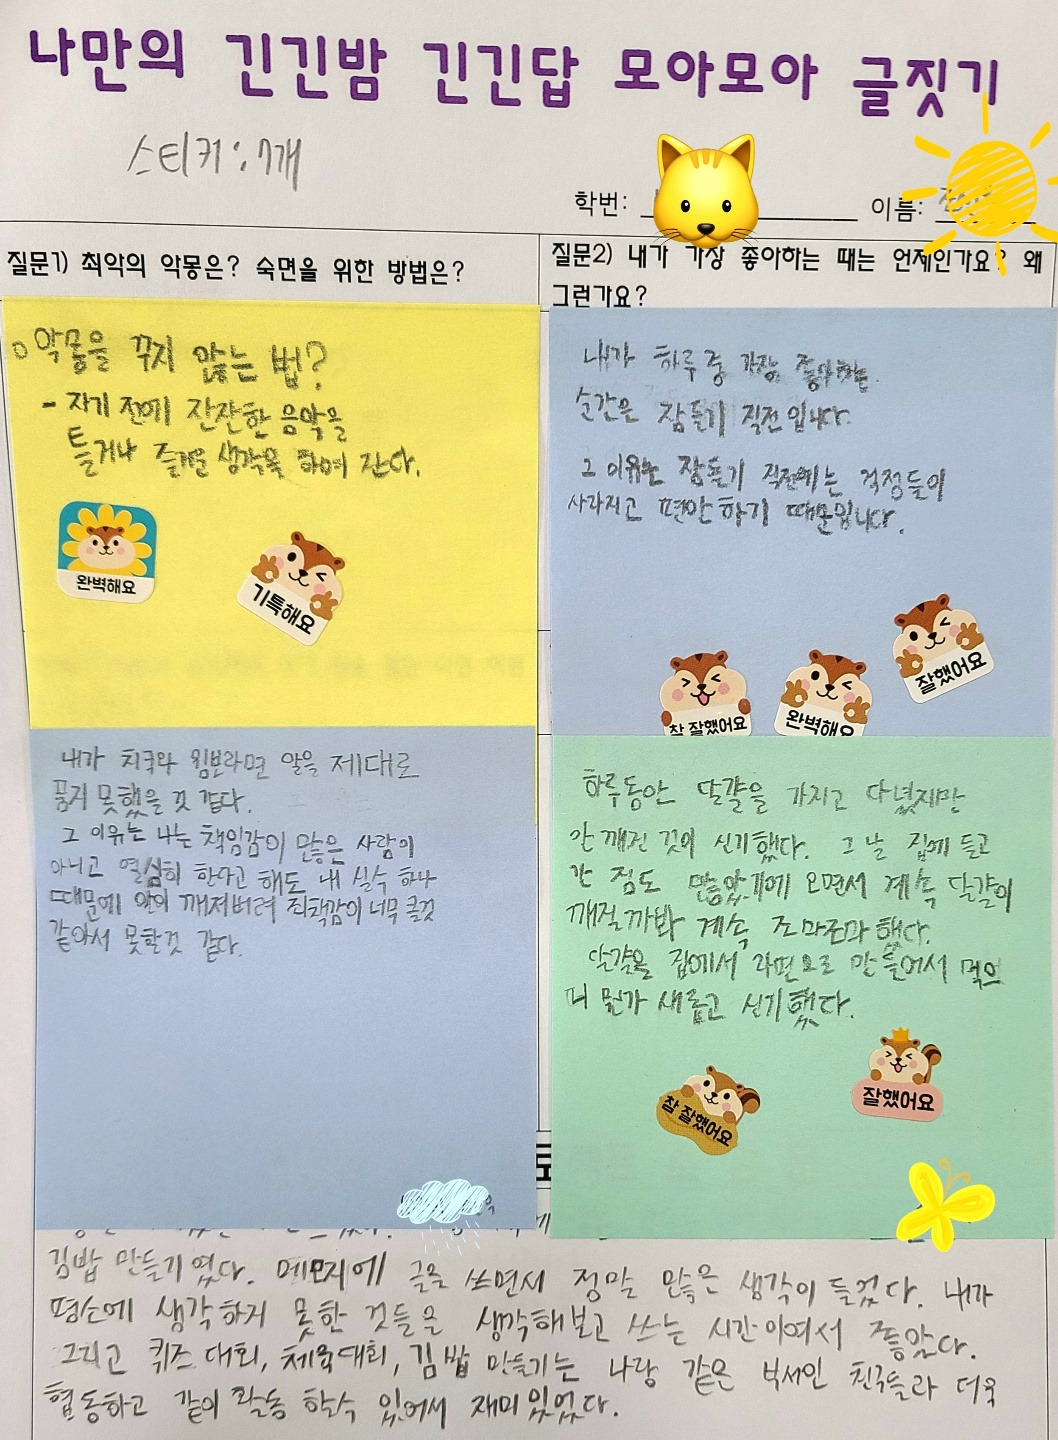 나만의 긴긴밤 긴긴답 모아모아 글짓기
스티커:7개
학번:
이름:
질문1) 최악의 악몽은? 숙면을 위한 방법은?
질문2) 내가 가장 좋아하는 때는 언제인가요? 왜
그런가요?
악몽을 꾸지 않는 법?
- 자기 전에 잔잔한 음악을
틀거나 즐거운 생각을 하며 잔다.
완벽해요
기특해요
내가 하루 중 가장 좋아하는
순간은 잠들기 직전입니다.
그 이유는 잠들기 직전에는 걱정들이
사라지고 편안하기 때문입니다.
참 잘했어요
완벽해요
잘했어요
내가 치쿠와 윔보라면 알을 제대로
품지 못했을 것 같다.
그 이유는 나는 책임감이 많은 사람이
아니고 열심히 한다고 해도 내 실수 하나
때문에 알이 깨져버려 죄책감이 너무 클것
같아서 못할것 같다.
하루동안 달걀을 가지고 다녔지만
안 깨진 것이 신기했다. 그 날 집에 들고
간 짐도 많았기에 오면서 계속 달걀이
깨질까봐 계속 조마조마 했다.
달걀을 집에서 라면으로 만들어서 먹으
니 뭔가 새롭고 신기했다.
참 잘했어요
잘했어요
김밥 만들기 였다. 메모지에 글을 쓰면서 정말 많은 생각이 들었다. 내가
평소에 생각하지 못한 것들을 생각해보고 쓰는 시간이여서 좋았다.
그리고 퀴즈 대회, 체육대회, 김밥 만들기는 나랑 같은 부서인 친구들과 더욱
협동하고 같이 활동 할수 있어서 재미있었다.